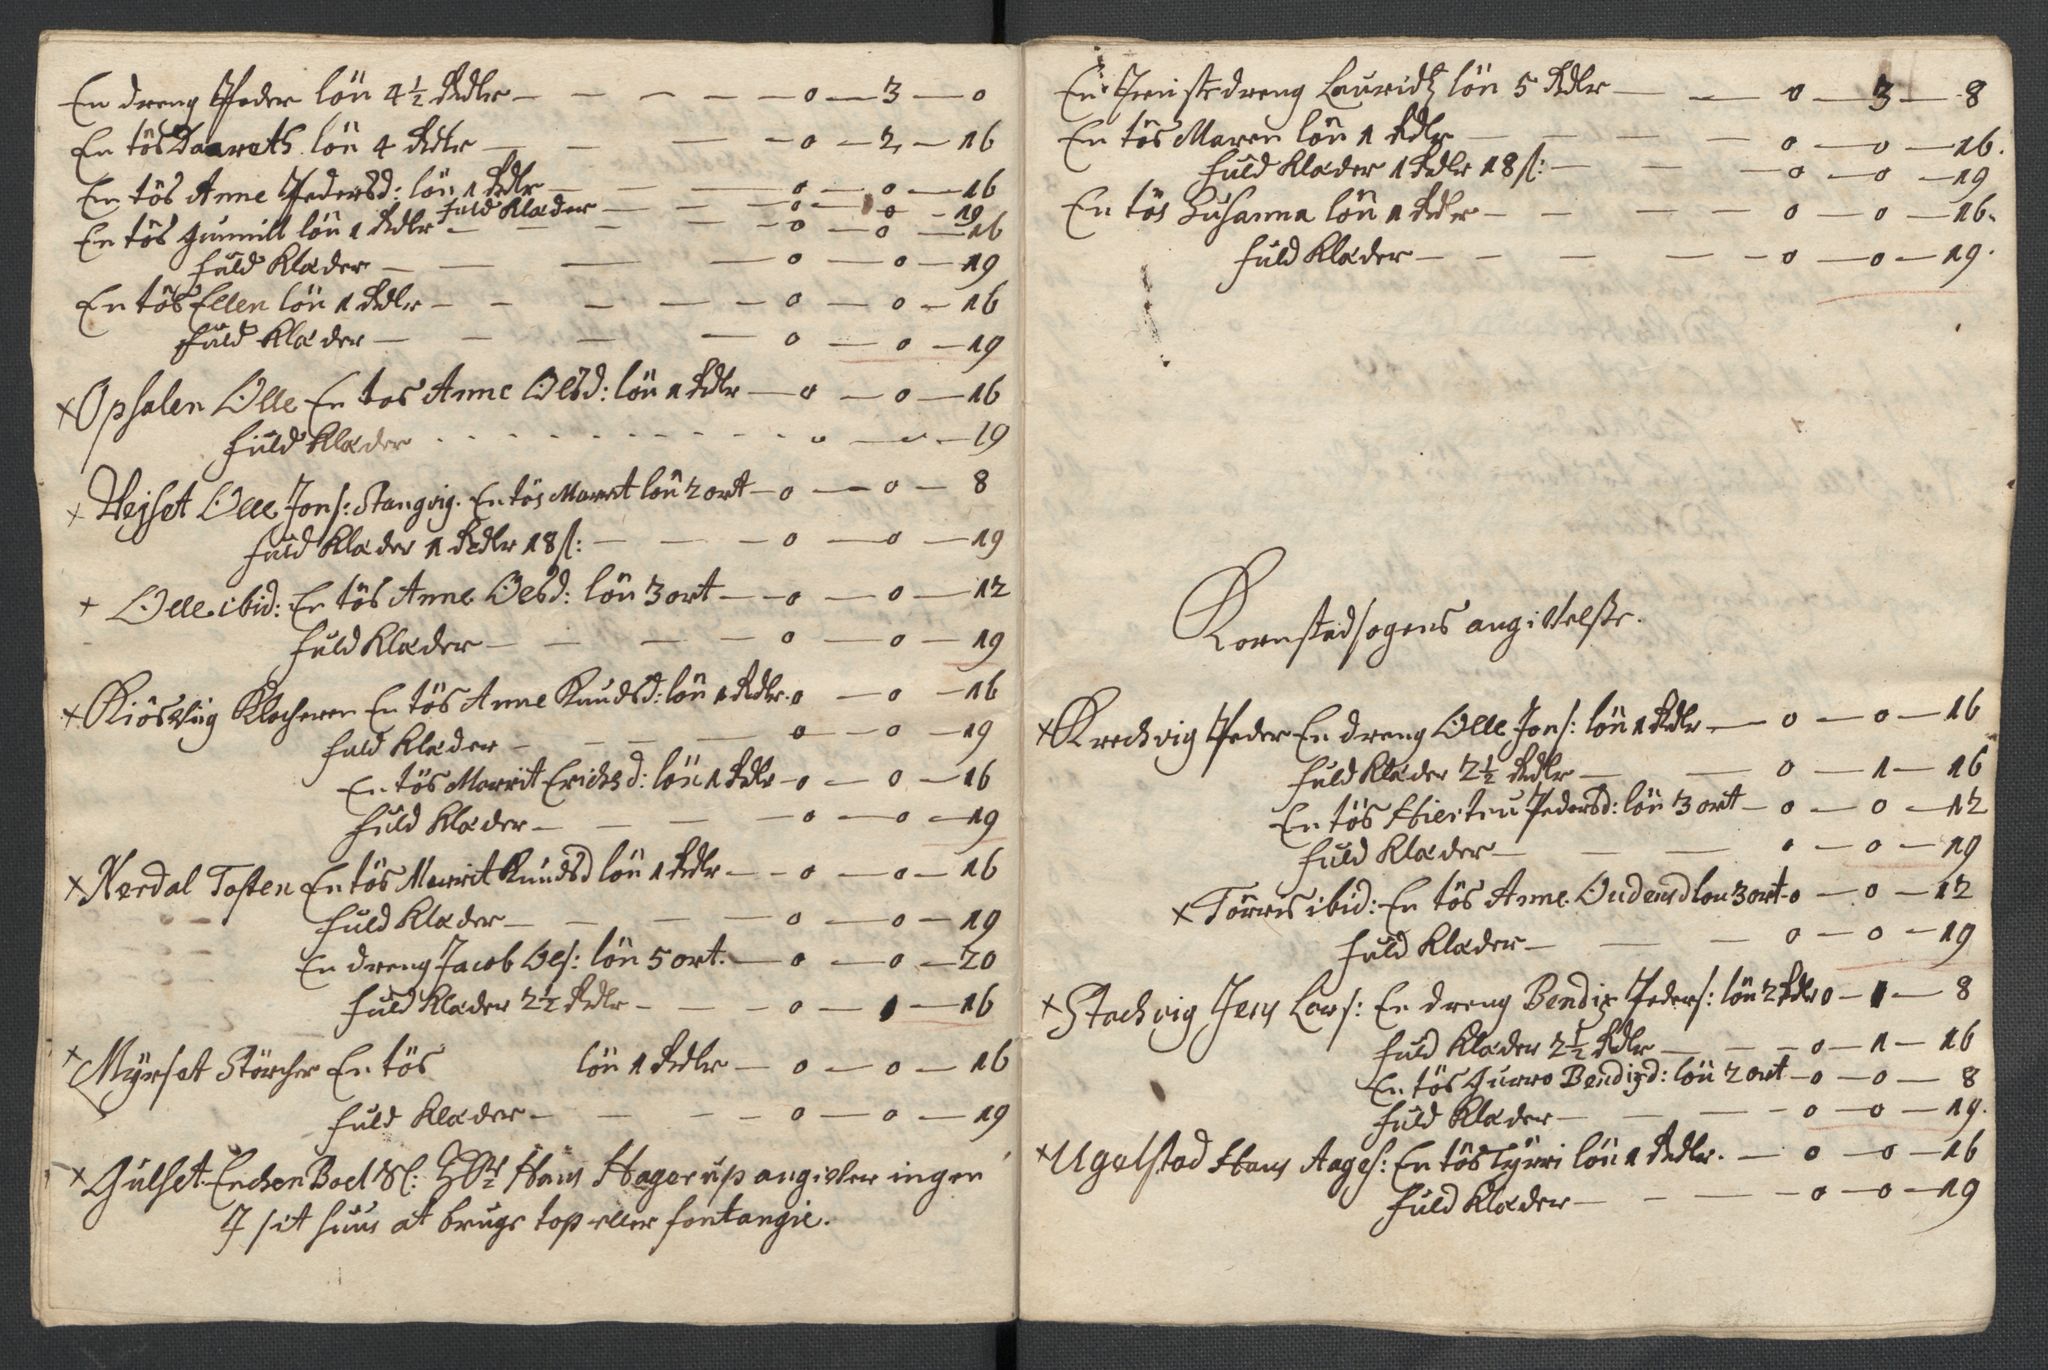 En dreng Peder lön 4½ Rdlr — — — — — 0 — 3 — 0
En tös Daareth lön 4 Rdlr — — — — 0 — 2 — 16
En tös Anne Pedersd: lön 1 Rdlr — — — 0 — 0 — 16
fuld Klæder — — — 0 — 0 — 19
En tös Gunnill lön 1 Rdlr — — — — 0 — 0 — 16
fuld Klæder — — — — 0 — 0 — 19
En tös Ellen lön 1 Rdlr — — — — — 0 — 0 — 16
fuld Klæder — — — — 0 — 0 — 19
× Opsalen Olle En tös Anne Olsd: lön 1 Rdlr — 0 — 0 — 16
fuld Klæder . . . . . . . . . . 0 — 0 — 19
× Olle Jons: Stangvig. En tös Marrit lön 2 ort — 0 — 0 — 8
fuld Klæder 1 Rdlr 18 s: — — — 0 — 0 — 19
+ Olle ibid: En tös Anne Olsd: lön 3 ort — — 0 — 0 — 12
fuld Klæder — — — — 0 — 0 — 19
× Kiösvig Klocheren En tös Anne Knudsd: lön 1 Rdlr. 0 — 0 — 16
fuld Klæder — — — — 0 — 0 — 19
En tös Marrit Erichsd: lön 1 Rdlr — 0 — 0 — 16
fuld Klæder — — — — 0 — 0 — 19
× Nerdal Tosten En tös Marrit Knudsd lön 1 Rdlr — — 0 — 0 — 16
fuld Klæder — — — — 0 — 0 — 19
En dreng Jacob Ols: lön 5 ort. — 0 — 0 — 20
fuld Klæder 2½ Rdlr — — — 0 — 1 — 16
× Myrset Störcher En tös lön 1 Rdlr — 0 — 0 — 16
fuld Klæder — — — — 0 — 0 — 19
× Gulset Enchen Boel Sl: Hr Hans Hagerup angifver ingen
J sit huus at bruge top eller fontangie.
En Tienistedreng Lauridtz lön 5 Rdlr — — 0 — 3 — 8
En tös Maren lön 1 Rdlr — — — — 0 — 0 — 16.
fuld Klæder 1 Rdlr 18 s: — — — 0 — 0 — 19
En tös Susanna lön 1 Rdlr — — — — 0 — 0 — 16.
fuld Klæder — — — — — 0 — 0 — 19.
Kornstadsogens angifvelse.
× Krechvig Peder En dreng Olle Jons: lön 1 Rdlr — 0 — 0 — 16
fuld Klæder 2½ Rdlr — — 0 — 1 — 16
En tös Hiertru Pedersd: lön 3 ort — 0 — 0 — 12
fuld Klæder — — — 0 — 0 — 19
× Törris ibid: En tös Anne Oudensd lön 3 ort. 0 — 0 — 12
fuld Klæder — — — 0 — 0 — 19
× Stachvig Jens Lars: En dreng Bendix Peders: lön 2 Rdlr 0 — 1 — 8
fuld Klæder 2½ Rdlr — — — 0 — 1 — 16
En tös Gurro Bendixd: lön 2 ort — 0 — 0 — 8
fuld Klæder — — — — 0 — 0 — 19.
× Ugelstad Hans Aages: En tös Tyrri lön 1 Rdlr. — 0 — 0 — 16
fuld Klæder — — — — 0 — 0 — 19